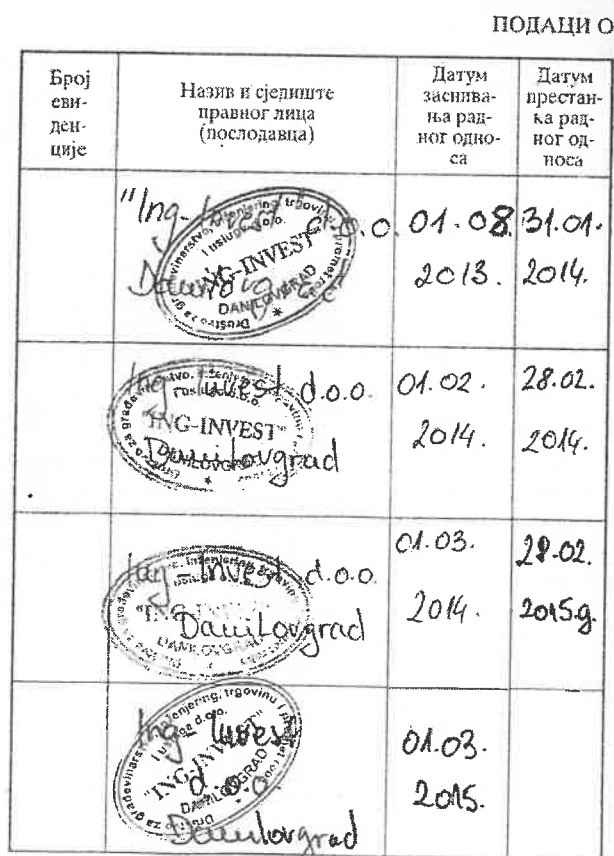 ПОДАЦИ О
Број
еви-
ден-
ције
Назив и сједиште
правног лица
(послодавца)
Датум
заснива-
ња рад-
ног одно-
са
Датум
престан-
ка рад-
ног од-
носа
"Ing-Invest" d.o.o.
Danilovgrad
"ING-INVEST"
DANILOVGRAD
01.08.
2013.
31.01.
2014.
Ing-Invest d.o.o.
Danilovgrad
"ING-INVEST"
DANILOVGRAD
01.02.
2014.
28.02.
2014.
Ing-Invest d.o.o.
Danilovgrad
DANILOVGRAD
01.03.
2014.
28.02.
2015.g.
Ing-Invest
d.o.o.
Danilovgrad
"ING-INVEST"
DANILOVGRAD
01.03.
2015.